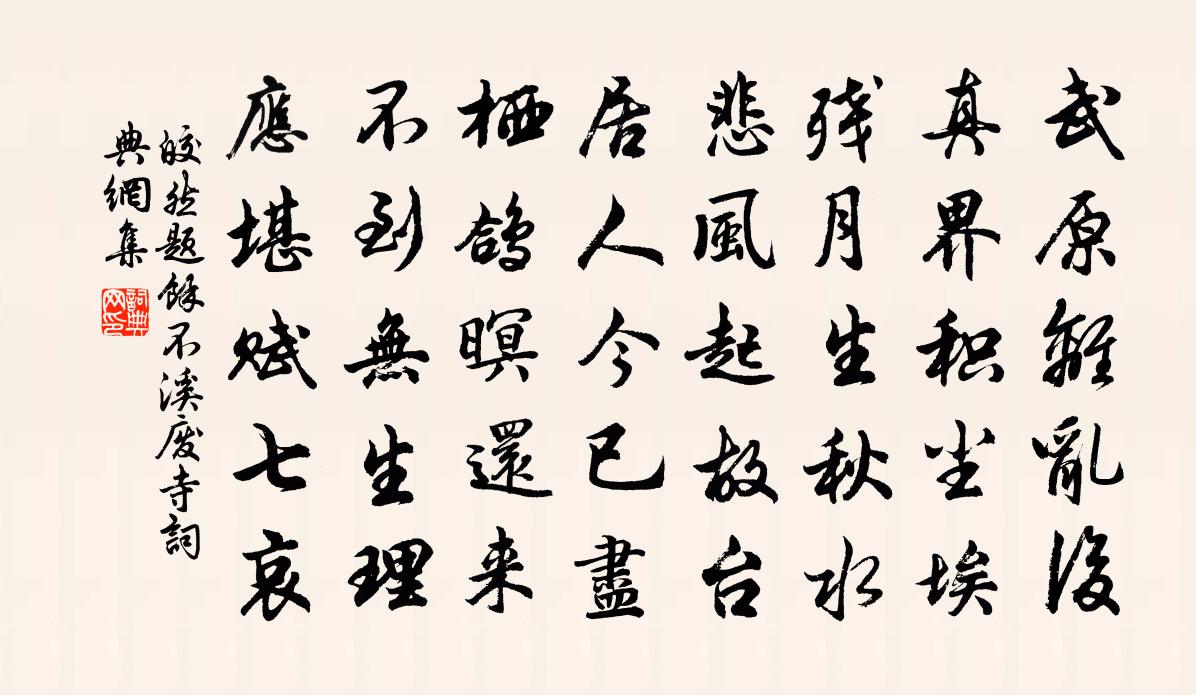 武原離亂後
真界积尘埃
残月生秋水
悲風起故台
居人今已盡
栖鴿暝還来
不到無生理
應堪赋七哀
皎然题餘不溪廢寺詞
典網集
詞典
网印